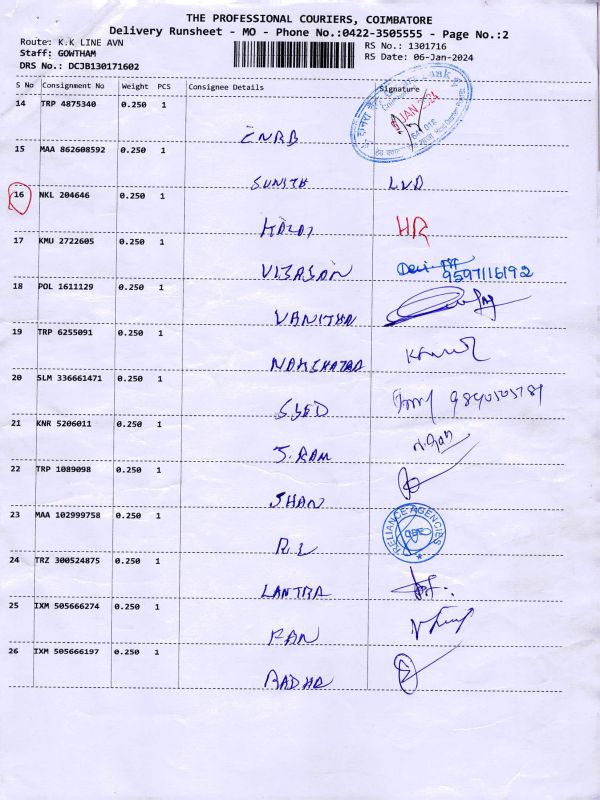 THE PROFESSIONAL COURIERS, COIMBATORE
Delivery Runsheet - MO - Phone No.:0422-3505555 - Page No.:2
Route: K.K LINE AVN
RS No.: 1301716
Staff: GOWTHAM
RS Date: 06-Jan-2024
DRS No.: DCJB130171602
S No Consignment No Weight PCS Consignee Details Signature
14 TRP 4875340 0.250 1
CNRB
JAN 2024
15 MAA 862608592 0.250 1
SUNITH LVD
16 NKL 204646 0.250 1
HR
17 KMU 2722605 0.250 1
9597116192
18 POL 1611129 0.250 1
VANITHA
19 TRP 6255091 0.250 1
20 SLM 336661471 0.250 1
SYED
21 KNR 5206011 0.250 1
S.RAM
22 TRP 1089098 0.250 1
SHAN
23 MAA 102999758 0.250 1
RELIANCE AGENCIES
24 TRZ 300524875 0.250 1
25 IXM 505666274 0.250 1
26 IXM 505666197 0.250 1
RADHA